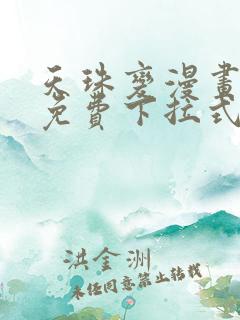 天珠變漫畫
免費下拉式
洪金洲
未经同意禁止转载